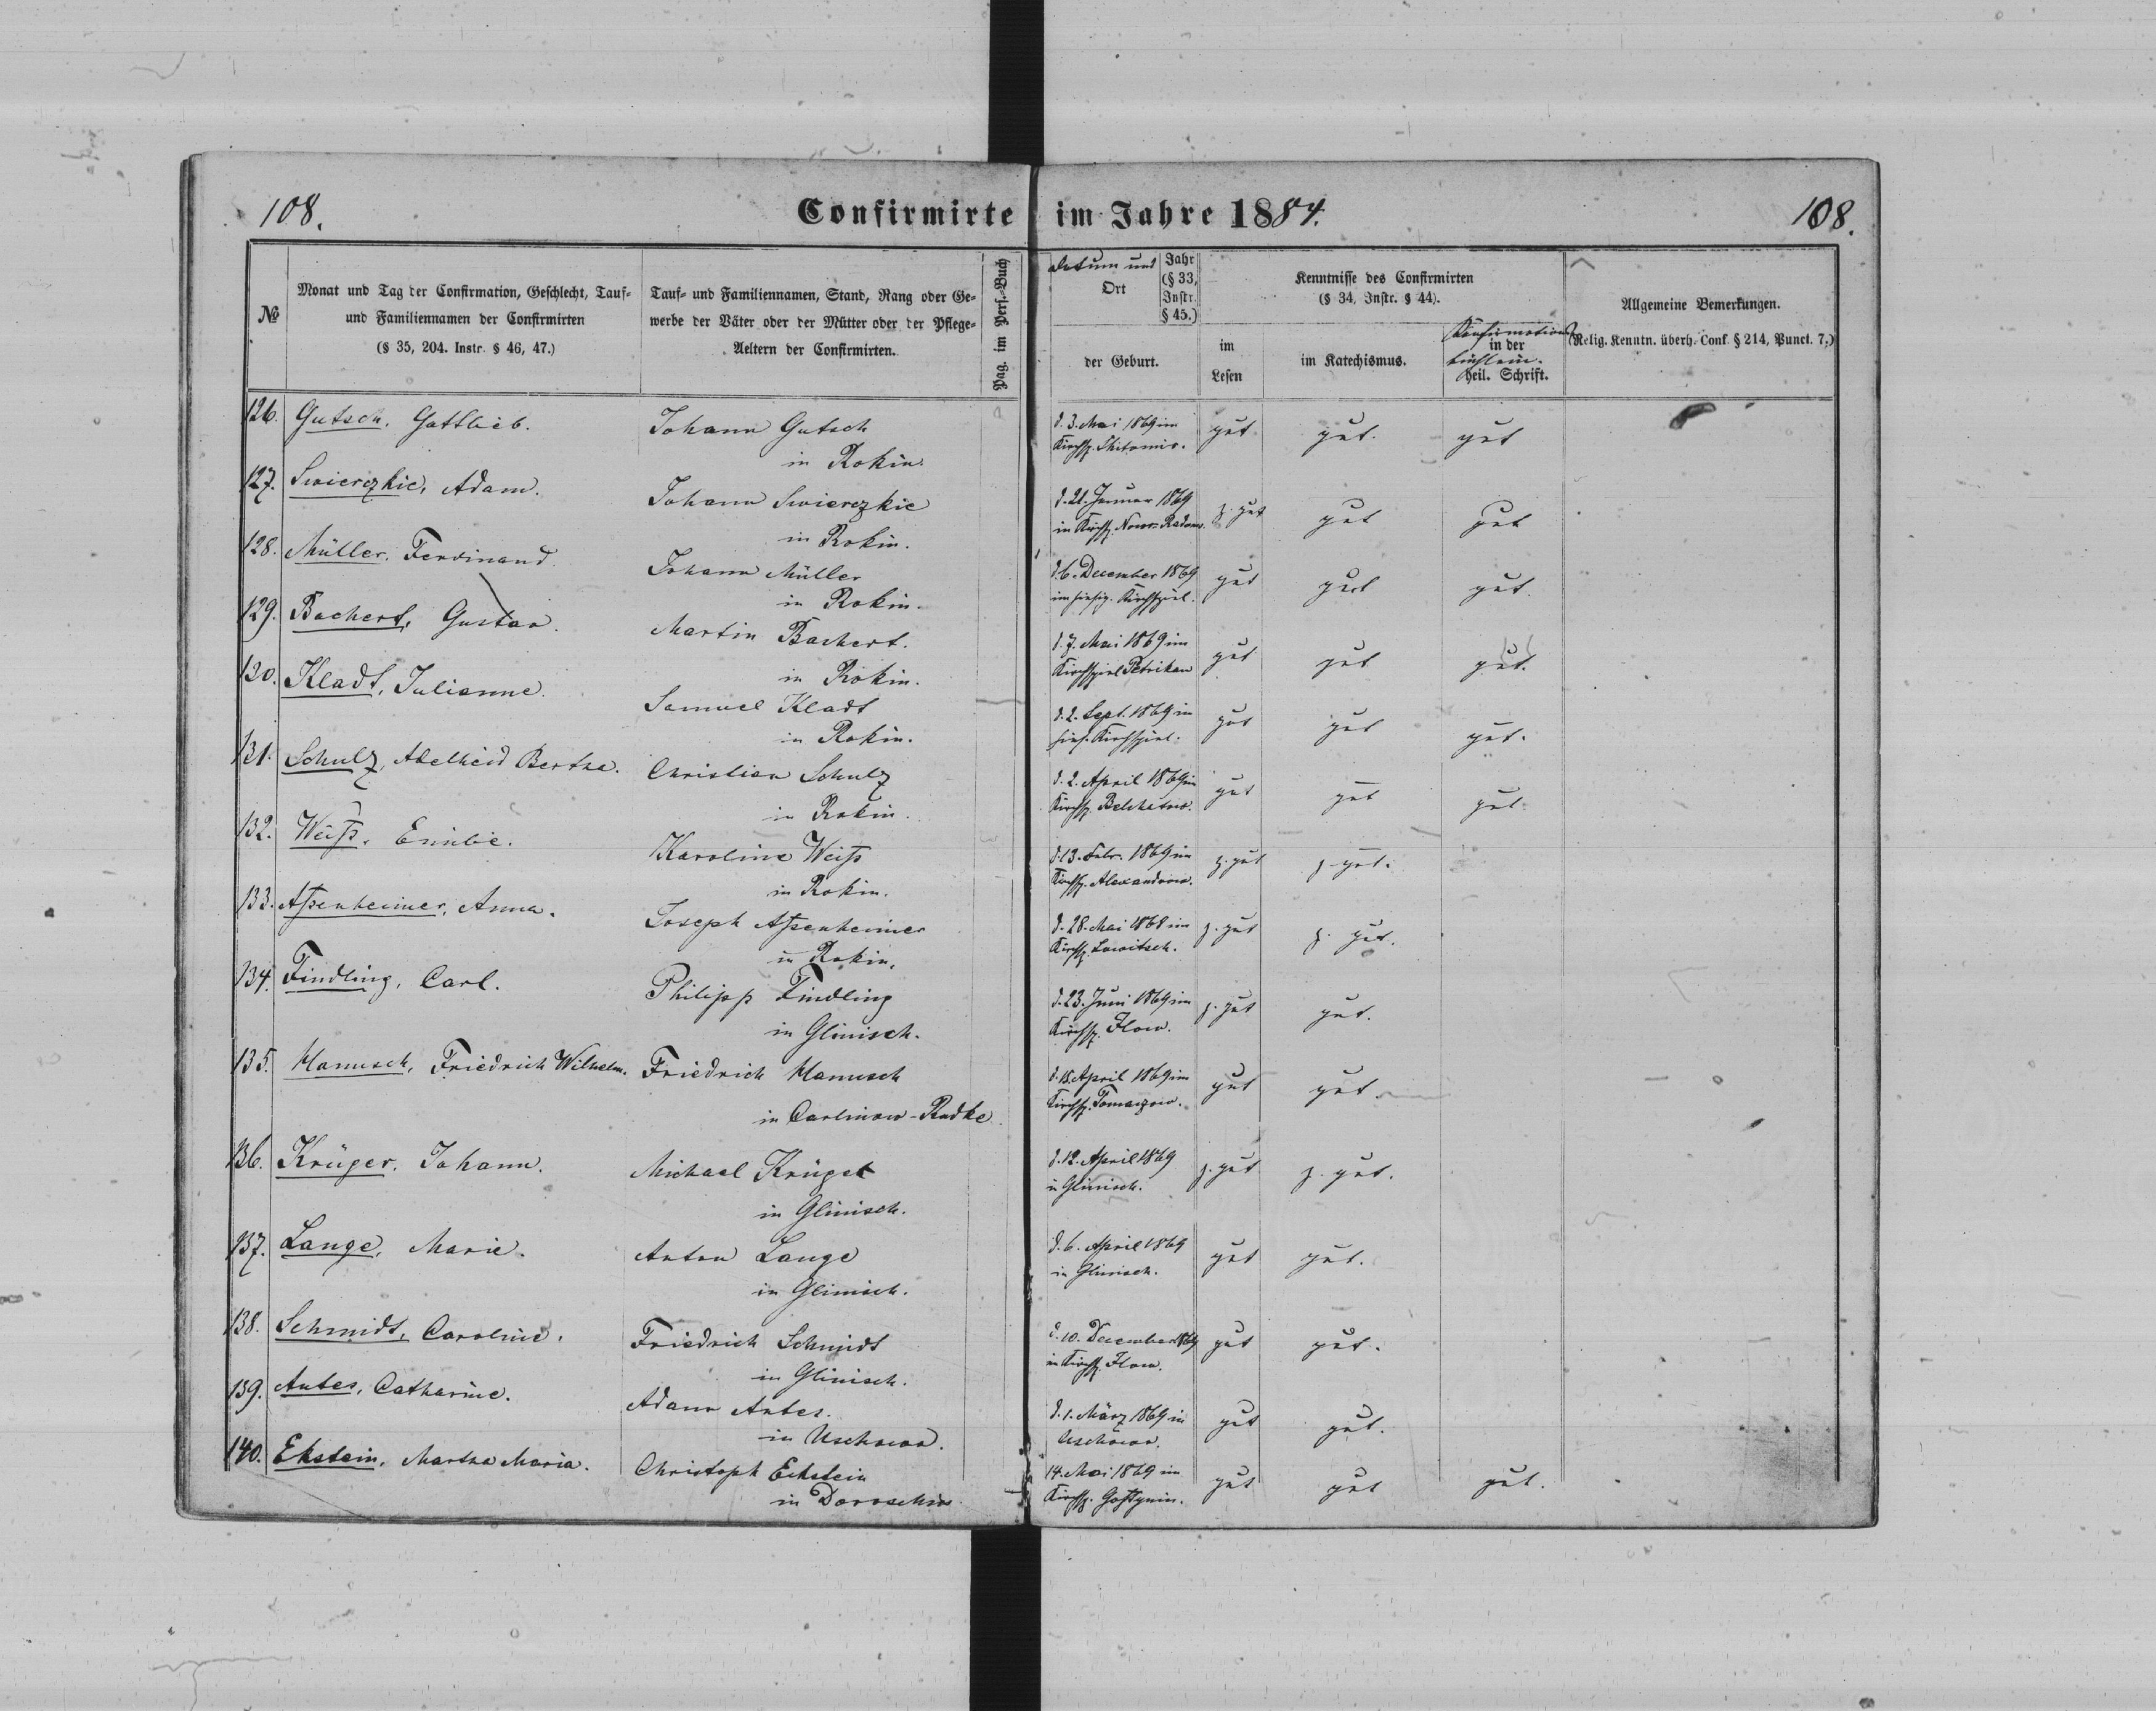 108.
Confirmirte im Jahre 1884.
108.
№
Monat und Tag der Confirmation, Geschlecht, Tauf-
und Familiennamen der Confirmirten
(§ 35, 204. Instr. § 46, 47.)
Tauf- und Familiennamen, Stand, Rang oder Ge-
werbe der Väter oder der Mütter oder der Pflege-
Aeltern der Confirmirten.
Pag. im Pers.-Buch
Datum und
Ort
der Geburt.
Jahr
(§ 33,
Instr.
§ 45.)
Kenntnisse des Confirmirten
(§ 34, Instr. § 44).
im
Lesen
im Katechismus.
Confirmations
in der
büchlein.
heil. Schrift.
Allgemeine Bemerkungen.
(Relig. Kenntn. überh. Conf. § 214, Punct. 7.)
126. Gutsch, Gottlieb.
Johann Gutsch
in Rokin.
d. 3. Mai 1869 im
Kirchsp. Shitomir.
gut gut. gut
127. Swierczkie, Adam.
Johann Swierczkie
in Rokin.
d. 21. Januar 1869
in Kirchsp. Nowo-Radom.
z. gut gut gut
128. Müller, Ferdinand.
Johann Müller
in Rokin.
d. 6. December 1869
im hiesig. Kirchspiel.
gut gut gut.
129. Bachert, Gustav.
Martin Bachert.
in Rokin.
d. 7. Mai 1869 im
Kirchspiel Petrikau
gut gut gut.
130. Kladt, Julianne.
Samuel Kladt
in Rokin.
d. 2. Sept. 1869 in
hies. Kirchspiel.
gut gut gut.
131. Schulz, Adelheid Bertha.
Christian Schulz
in Rokin.
d. 2. April 1869 im
Kirchsp. Belchatow.
gut gut gut.
132. Weiß, Emilie.
Karoline Weiß
in Rokin.
d. 13. Febr. 1869 im
Kirchsp. Alexandrow.
z. gut z. gut.
133. Aßenheimer, Anna.
Joseph Aßenheimer
in Rokin.
d. 28. Mai 1868 im
Kirchsp. Lowitsch.
z. gut z. gut.
134. Findling, Carl.
Philipp Findling
in Glinisch.
d. 23. Juni 1869 im
Kirchsp. Ilow.
z. gut gut.
135. Hanusch, Friedrich Wilhelm.
Friedrich Hanusch
in Carlinow-Rudke.
d. 18. April 1869 im
Kirchsp. Tomaszow.
gut gut.
136. Krüger, Johann.
Michael Krüger
in Glinisch.
d. 12. April 1869
in Glinisch.
z. gut z. gut.
137. Lange, Marie.
Anton Lange
in Glinisch.
d. 6. April 1869
in Glinisch.
gut gut.
138. Schmidt, Caroline.
Friedrich Schmidt
in Glinisch.
d. 10. December 1869
in Kirchsp. Ilow.
gut gut.
139. Antes, Catharine.
Adam Antes.
in Uschowa.
d. 1. März 1869 in
Uschowa.
gut gut.
140. Ekstein, Martha Maria.
Christoph Eckstein
in Doroschin
14. Mai 1869 im
Kirchsp. Gostynin.
gut gut gut.